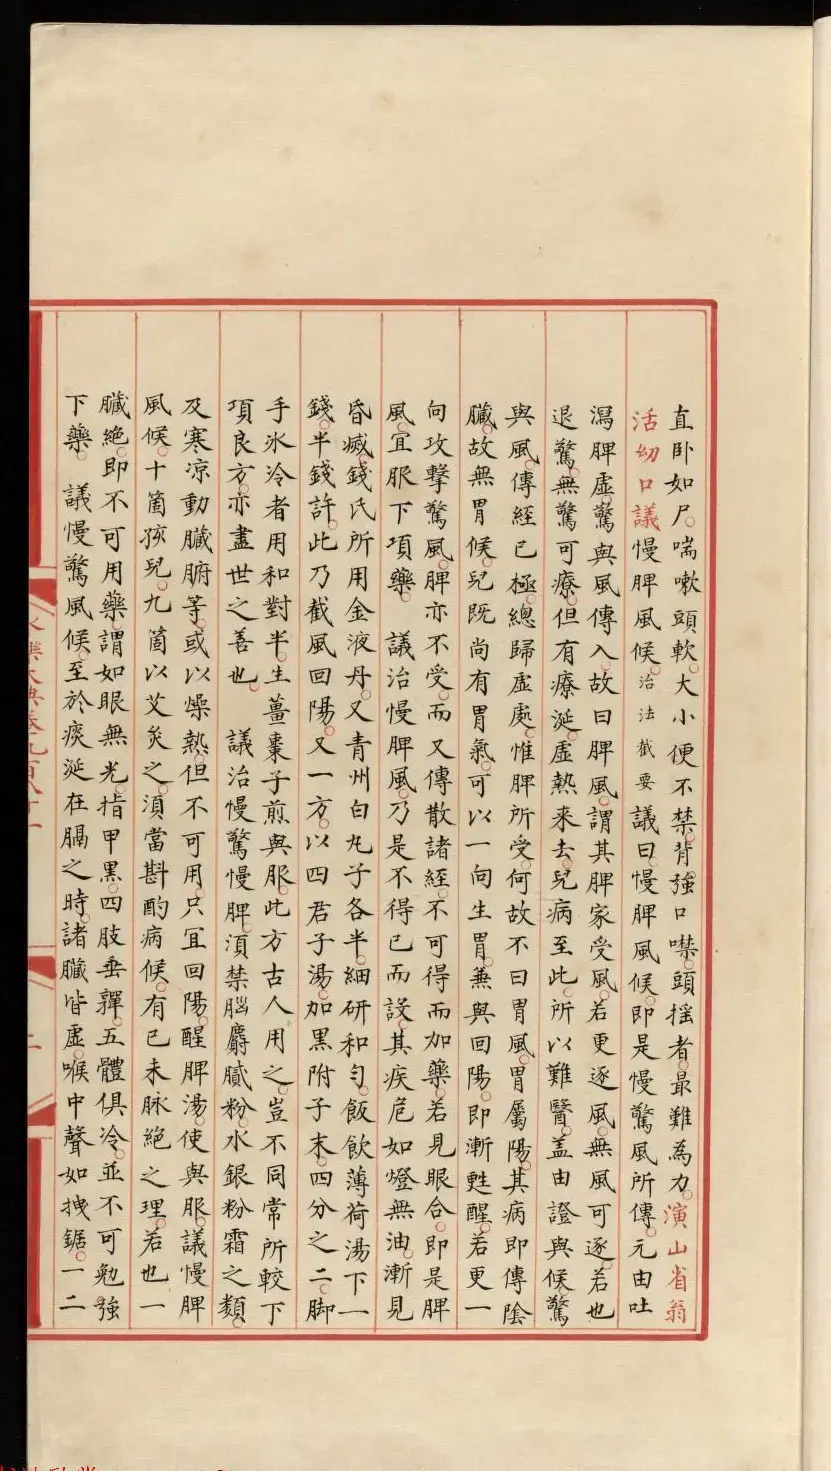 直卧如尸喘嗽頭軟大小便不禁背強口噤頭揺者最難為力演山省翁
活幼口議慢脾風候治法截要議曰慢脾風候即是慢驚風所傳元由吐
瀉脾虛驚與風傳入故曰脾風謂其脾家受風若更逐風無風可逐若也
退驚無驚可療但有療涎虛熱來去兒病至此所以難醫盖由證與候驚
與風傳經已極總歸虛處惟脾所受何故不曰胃風胃屬陽其病即傳陰
臟故無胃候兒既尚有胃氣可以一向生胃兼與回陽即漸甦醒若更一
向攻擊驚風脾亦不受而又傳散諸經不可得而加藥若見眼合即是脾
風宜服下項藥 議治慢脾風乃是不得已而設其疾危如燈無油漸見
昏滅錢氏所用金液丹又青州白丸子各半細研和勻飯飲薄荷湯下一
錢半錢許此乃截風回陽又一方以四君子湯加黑附子末四分之二脚
手氷冷者用和對半生薑棗子煎與服此方古人用之豈不同常所較下
項良方亦盡世之善也 議治慢驚慢脾湏禁腦麝膩粉水銀粉霜之類
及寒凉動臟腑等或以燥熱但不可用只宜回陽醒脾湯使與服議慢脾
風候十箇孩兒九箇以艾灸之湏當斟酌病候有已未脉絶之理若也一
臟絶即不可用藥謂如眼無光指甲黑四肢垂嚲五體俱冷並不可勉強
下藥 議慢驚風候至於痰涎在膈之時諸臟皆虛喉中聲如拽鋸一二
二